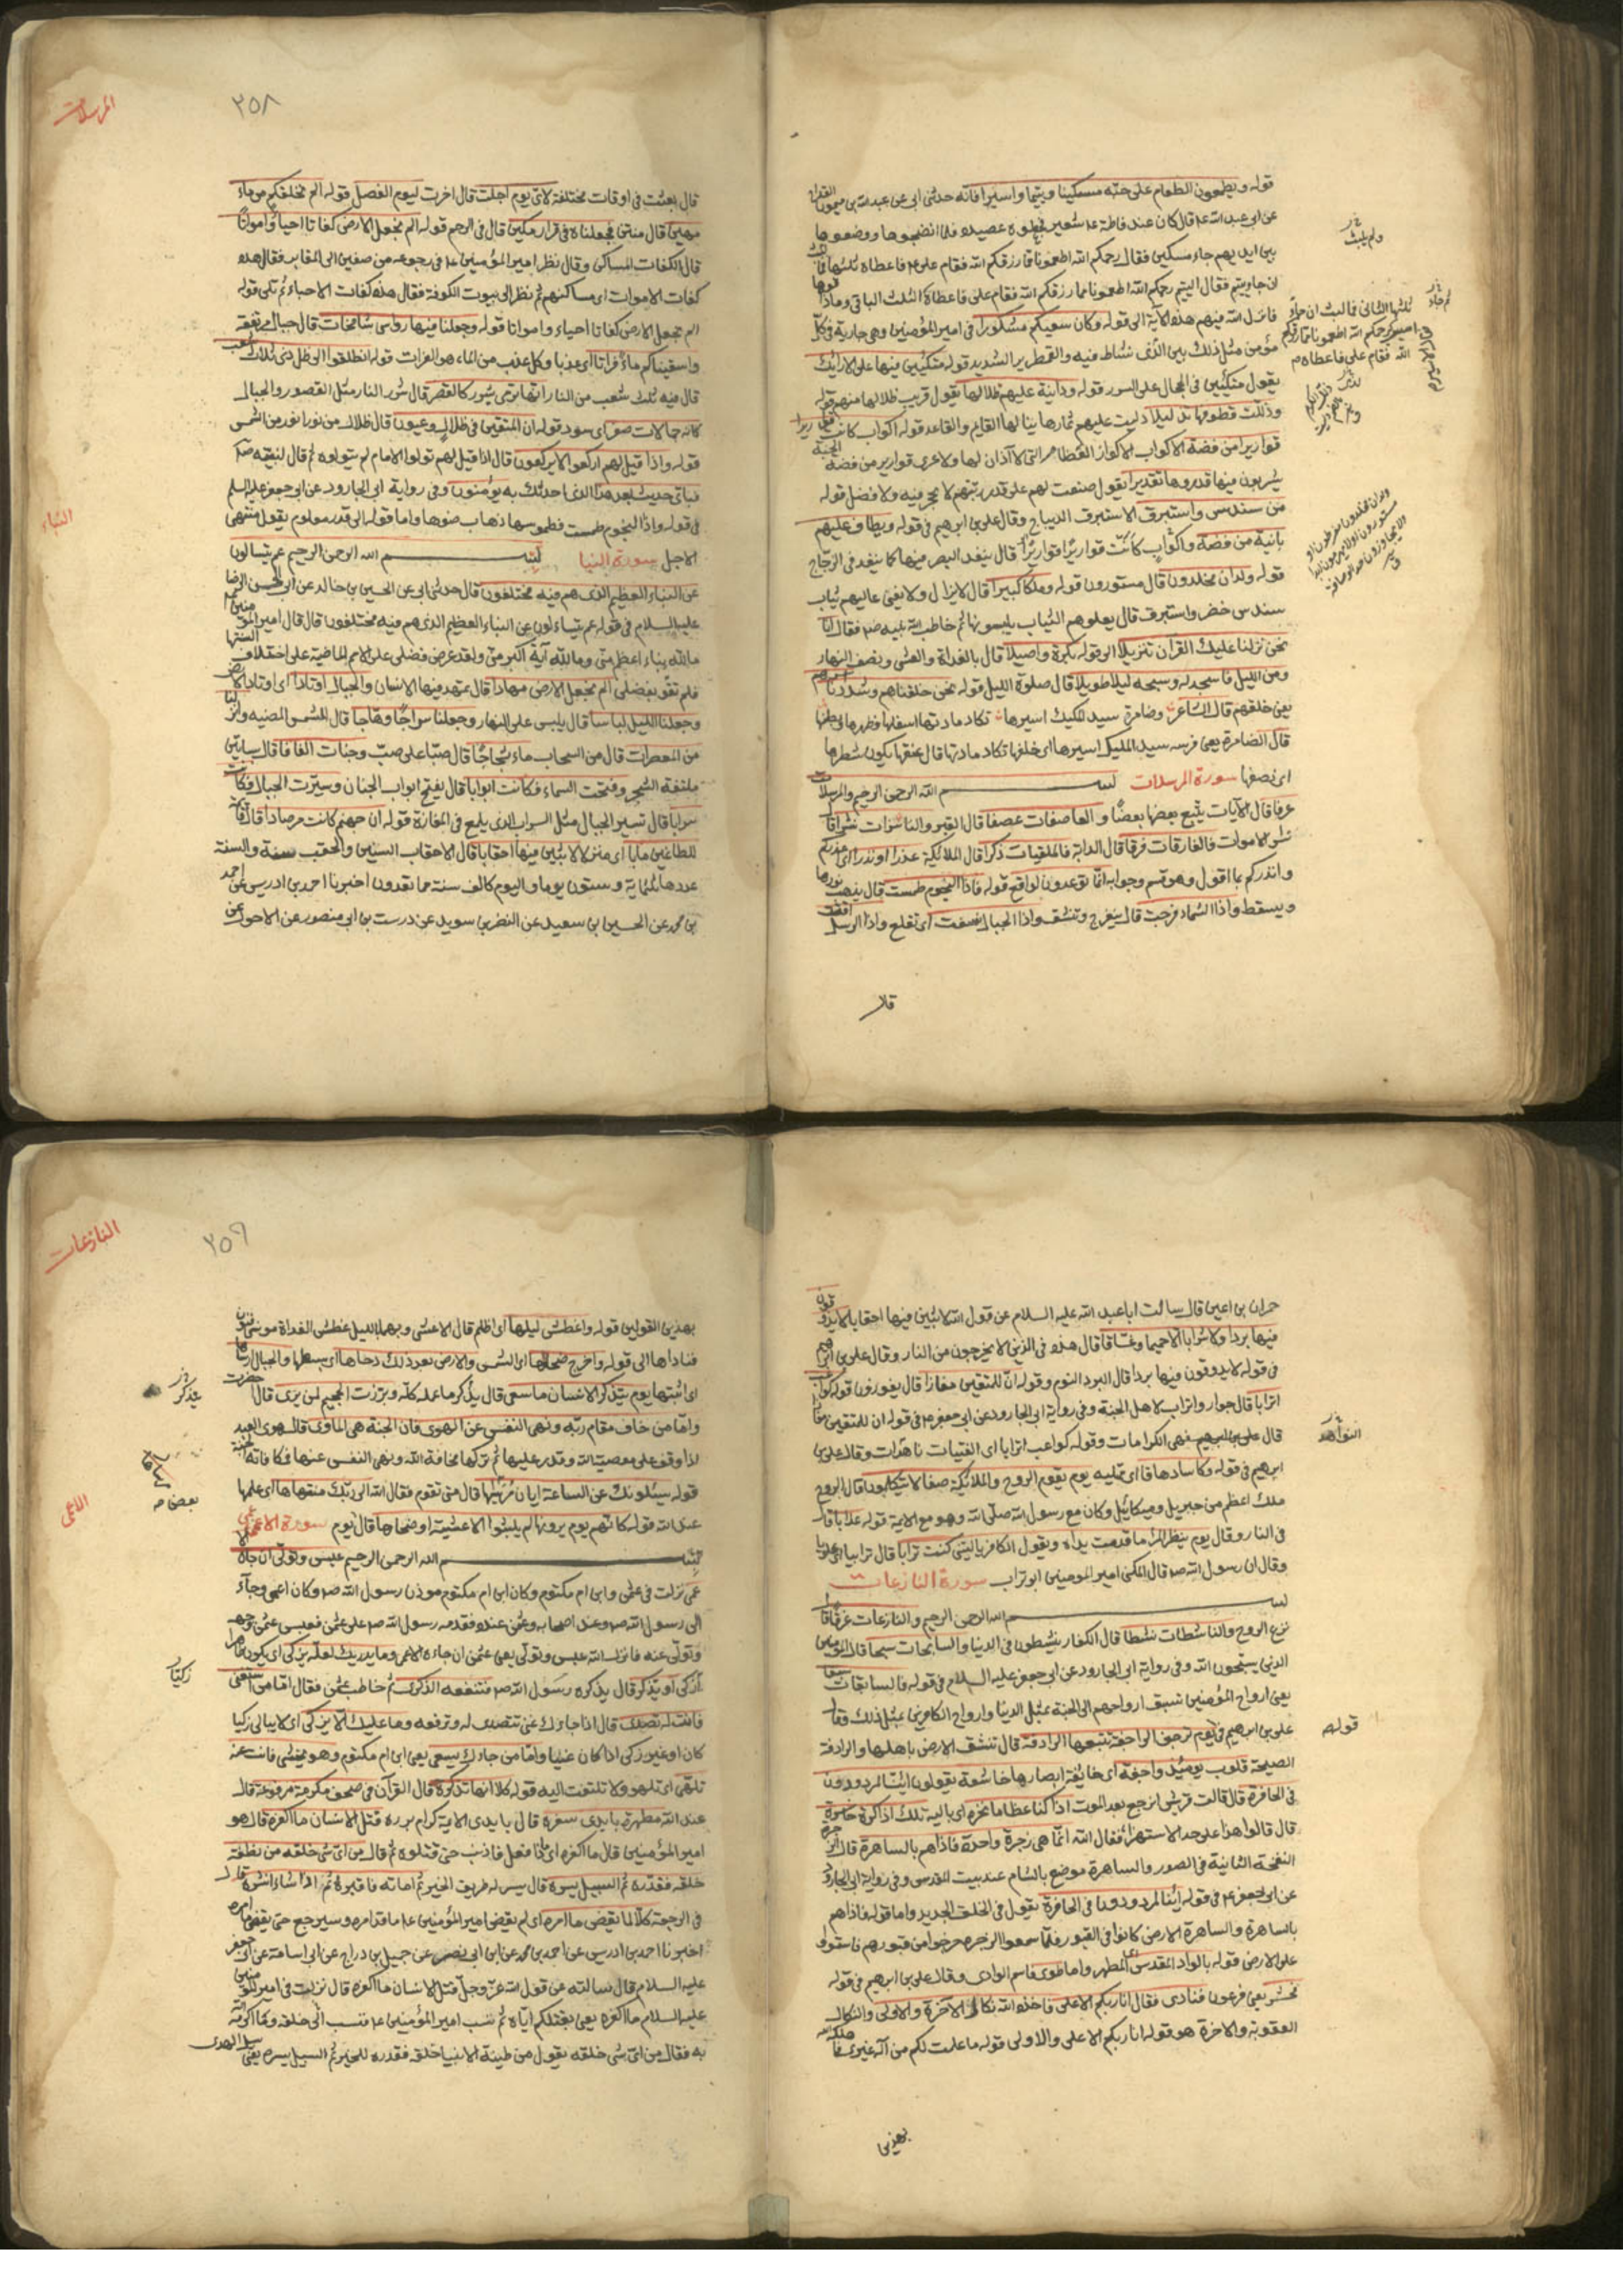 قوله ويطعمون الطعام على حبه مسكينا ويتيما واسيرا فانه حدثنى ابى عن عبد الله بن ميمون القداح
عن ابى عبد الله ع قال كان عند فاطمة ع شعير فجعلوه عصيدة فلما انضجوها ووضعوها
بين ايديهم جاء مسكين فقال رحمكم الله اطعمونا مما رزقكم الله فقام على ع فاعطاه ثلثها فما
ان جاء يتيم فقال اليتيم رحمكم الله اطعمونا مما رزقكم الله فقام على فاعطاه الثلث الباقى وماذا قوها
فانزل الله فيهم هذه الآية الى قوله وكان سعيكم مشكورا فى امير المؤمنين وهى جارية فى كل
مؤمن مثل ذلك بين الذى نشاط فيه والقمطرير الشديد قوله متكئين فيها على الارائك
يقول متكئين فى الحجال على السرر قوله ودانية عليهم ظلالها يقول قريب ظلالها منهم قوله
وذللت قطوفها تذليلا دليت عليهم ثمارها ينالها القايم والقاعد قوله اكواب كانت قواريرا
قواريرا من فضة الاكواب الاكواز العظام التى لا آذان لها ولا عرى قوارير من فضة الجنة
يشربون فيها قدروها تقديرا يقول صنعت لهم على قدر رتبتهم لا عجز فيه ولا فضل قوله
من سندس واستبرق الاستبرق الديباج وقال على بن ابرهيم فى قوله ويطاف عليهم
بانية من فضة واكواب كانت قواريرا قواريرا قال ينفذ البصر فيها كما ينفذ فى الزجاج
قوله ولدان مخلدون قال مستورون قوله وملكا كبيرا قال لا يزال ولا يفنى عاليهم ثياب
سندس خضر واستبرق قال يعلوهم الثياب يلبسونها ثم خاطب الله نبيه ص فقال انا
نحن نزلنا عليك القرآن تنزيلا الى قوله بكرة واصيلا قال بالغداة والعشى ونصف النهار
ومن الليل فاسجد له وسبحه ليلا طويلا قال صلوة الليل قوله نحن خلقناهم وشددنا اسرهم
يعنى خلقهم قال الشاعر وضامرة سيد للكيك اسيرها تكاد مادتها اسفلها وظهرها وبطنها
قال الضامرة يعنى فرسه سيد المليك اسيرها اى خلقها تكاد مادتها قال عنقها يكون شطرها
اى نصفها سورة المرسلات بسم الله الرحمن الرحيم والمرسلات
عرفا قال الآيات يتبع بعضها بعضا والعاصفات عصفا قال القبر والناشرات نشرا قال
نشر الاموات فالفارقات فرقا قال الدابة فالملقيات ذكرا قال الملائكة عذرا او نذرا اى اعذركم
وانذركم بما اقول وهو قسم وجوابه انما توعدون لواقع قوله فاذا النجوم طمست قال يذهب نورها
ويسقط واذا السماء فرجت قال ينفرج وتنشق واذا الجبال نسفت اى تقلع واذا الرسل اقتت
قال
ولم يلبث
ثلثها الثانى فما لبث ان جاء
اسير رحمكم الله اطعمونا مما رزقكم
الله فقام على فاعطاه
المرسلات
٣٥٨
قال بعثت فى اوقات مختلفة لاى يوم اجلت قال اخرت ليوم الفصل قوله الم نخلقكم من ماء
مهين قال منتن فجعلناه فى قرار مكين قال فى الرحم قوله الم نجعل الارض كفاتا احياء وامواتا
قال الكفات المساكن وقال نظر امير المؤمنين ع فى رجوعه من صفين الى المقابر فقال هذه
كفات الاموات اى مساكنهم ثم نظر الى بيوت الكوفة فقال هذه كفات الاحياء ثم تلى قوله
الم نجعل الارض كفاتا احياء وامواتا قوله وجعلنا فيها رواسى شامخات قال جبال مرتفعة
واسقيناكم ماء فراتا اى عذبا وكل عذب من الماء هو الفرات قوله انطلقوا الى ظل ذى ثلاث شعب
قال فيه ثلث شعب من النار انها ترمى بشرر كالقصر قال شرر النار مثل القصور والجبال
كانه جمالات صفر اى سود قوله ان المتقين فى ظلال وعيون قال ظلال من نور انور من الشمس
قوله واذا قيل لهم اركعوا لا يركعون قال اذا قيل لهم تولوا الامام لم يتولوه ثم قال لنبيه ص
فباى حديث بعد هذا الذى احدثك به يؤمنون وفى رواية ابى الجارود عن ابى جعفر عليه السلم
فى قوله واذا النجوم طمست فطموسها ذهاب ضوها واما قوله الى قدر معلوم يقول منتهى
الاجل سورة النبا بسم الله الرحمن الرحيم عم يتسالون
عن النباء العظيم الذى هم فيه مختلفون قال حدثنى ابى عن الحسين بن خالد عن ابى الحسن الرضا
عليه السلام فى قوله عم يتساءلون عن النباء العظيم الذى هم فيه مختلفون قال قال امير المؤمنين
ما لله نباء اعظم منى وما لله آية اكبر منى ولقد عرض فضلى على الامم الماضية على اختلاف السنتها
فلم تقر بفضلى الم نجعل الارض مهادا قال يمهد فيها الانسان والجبال اوتادا اى اوتاد الارض
وجعلنا الليل لباسا قال يلبس على النهار وجعلنا سراجا وهاجا قال الشمس المضيئه وانزلنا
من المعصرات قال من السحاب ماء ثجاجا قال صبا على صب وجنات الفافا قال بساتين
ملتفة الشجر وفتحت السماء فكانت ابوابا قال تفتح ابواب الجنان وسيرت الجبال فكانت
سرابا قال تسير الجبال مثل السراب الذى يلمع فى المفازة قوله ان جهنم كانت مرصادا قال قائمة
للطاغين مابا اى منزلا لابثين فيها احقابا قال الاحقاب السنين والحقب سنة والسنة
عددها ثلثماية وستون يوما واليوم كالف سنة مما تعدون اخبرنا احمد بن ادريس عن احمد
بن محمد عن الحسين بن سعيد عن النضر بن سويد عن درست بن ابى منصور عن الاحول عن
النباء
حمران بن اعين قال سالت ابا عبد الله عليه السلام عن قول الله لابثين فيها احقابا لا يذوقون
فيها بردا ولا شرابا الا حميما وغساقا قال هذه فى الذين لا يخرجون من النار وقال على بن ابرهيم
فى قوله لا يذوقون فيها بردا قال البرد النوم وقوله ان للمتقين مفازا قال يفوزون قوله كواعب
اترابا قال جوار واتراب لاهل الجنة وفى رواية ابى الجارود عن ابى جعفر ع فى قوله ان للمتقين مفازا
قال فهى الكرامات وقوله كواعب اترابا اى الفتيات ناهدات وقال على بن
ابرهيم فى قوله وكاسا دهاقا اى ممتليه يوم يقوم الروح والملائكة صفا لا يتكلمون قال الروح
ملك اعظم من جبريل وميكائيل وكان مع رسول الله صلى الله وهو مع الايمة قوله عذابا قال
فى النار وقال يوم ينظر المرء ما قدمت يداه ويقول الكافر يا ليتنى كنت ترابا قال ترابيا اى علويا
وقال ان رسول الله ص قال المكنى امير المومنين ابو تراب سورة النازعات
بسم الله الرحمن الرحيم والنازعات غرقا قال
نزع الروح والناشطات نشطا قال الكفار ينشطون فى الدنيا والسابحات سبحا قال المؤمنين
الذين يسبحون الله وفى رواية ابى الجارود عن ابى جعفر عليه السلام فى قوله فالسابقات سبقا
يعنى ارواح المؤمنين تسبق ارواحهم الى الجنة بمثل الدنيا وارواح الكافرين بمثل ذلك وقال
على بن ابرهيم فى يوم ترجف الراجفة تتبعها الرادفة قال تنشق الارض باهلها والرادفة
الصيحة قلوب يومئذ واجفة اى خايفة ابصارها خاشعة يقولون ائنا لمردودون
فى الحافرة قال قالت قريش انرجع بعد الموت اذا كنا عظاما نخرة اى بالية تلك اذا كرة خاسرة
قال قالوا هذا على حد الاستهزاء فقال الله انما هى زجرة واحدة فاذا هم بالساهرة قال الزجرة
النفخة الثانية فى الصور والساهرة موضع بالشام عند بيت المقدس وفى رواية ابى الجارود
عن ابى جعفر ع فى قوله ائنا لمردودون فى الحافرة يقول فى الخلق الجديد واما قوله فاذا هم
بالساهرة والساهرة الارض كانوا فى القبور فلما سمعوا الزجرة خرجوا من قبورهم فاستووا
على الارض قوله بالواد المقدس اى المطهر واما طوى فاسم الوادى وقال على بن ابرهيم فى قوله
فحشر يعنى فرعون فنادى فقال انا ربكم الاعلى فاخذه الله نكال الآخرة والاولى والنكال
العقوبة والاخرة هو قوله انا ربكم الاعلى والاولى قوله ما علمت لكم من اله غيرى فاهلكه الله
بهذين
النواهد
قوله
النازعات
٣٥٩
بهذين القولين قوله واغطش ليلها اى اظلم قال الاعشى وبهماء بالليل غطش الفلاة مونسى
فناداها الى قوله واخرج ضحاها اى الشمس والارض بعد ذلك دحاها اى بسطها والجبال ارساها
اى اثبتها يوم يتذكر الانسان ما سعى قال يذكر ما عمله كله وبرزت الجحيم لمن يرى قال احضرت
واما من خاف مقام ربه ونهى النفس عن الهوى فان الجنة هى الماوى قال هو العبد
اذا وقف على معصية الله وقدر عليها ثم تركها مخافة الله ونهى النفس عنها فمكافاته الجنة
قوله يسئلونك عن الساعة ايان مرسيها قال متى تقوم فقال الله الى ربك منتهاها اى علمها
عند الله قوله كانهم يوم يرونها لم يلبثوا الا عشية او ضحاها قال يوم سورة الاعمى
بسم الله الرحمن الرحيم عبس وتولى ان جاءه
الاعمى نزلت فى عثمن وابن ام مكتوم وكان ابن ام مكتوم موذن رسول الله ص وكان اعمى وجآء
الى رسول الله ص وعنده اصحابه وعثمن عنده فقدمه رسول الله ص على عثمن فعبس عثمن وجهه
وتولى عنه فانزل الله عبس وتولى يعنى عثمن ان جاءه الاعمى وما يدريك لعله يزكى اى يكون طاهرا
ازكى او يتذكر قال يذكره رسول الله ص فتنفعه الذكرى ثم خاطب عثمن فقال اما من استغنى
فانت له تصدى قال اذا جاءك غنى تتصدى له وترفعه وما عليك الا يزكى اى لا يبالى زكيا
كان او غير زكى اذا كان غنيا واما من جاءك يسعى يعنى ابن ام مكتوم وهو يخشى فانت عنه
تلهى اى تلهو ولا تلتفت اليه قوله كلا انها تذكرة قال القرآن فى صحف مكرمة مرفوعة قال
عند الله مطهرة بايدى سفرة قال بايدى الايمة كرام بررة قتل الانسان ما اكفره قال هو
امير المؤمنين قال ما اكفره اى ماذا فعل فاذنب حتى قتلوه ثم قال من اى شى خلقه من نطفة
خلقه فقدره ثم السبيل يسره قال يسر له طريق الخير ثم اماته فاقبره ثم اذا شاء انشره قال
فى الرجعة كلا لما يقض ما امره اى لم يقض امير المؤمنين ع ما قد امره وسيرجع حتى يقضى ما امره
اخبرنا احمد بن ادريس عن احمد بن محمد عن ابن ابى نصر عن جميل بن دراج عن ابى اسامة عن ابى جعفر
عليه السلام قال سالته عن قول الله عز وجل قتل الانسان ما اكفره قال نزلت فى امير المؤمنين
عليه السلام ما اكفره يعنى بقتلكم اياه ثم نسب امير المؤمنين ع فنسب الى خلقه وما اكرمه الله
به فقال من اى شى خلقه يقول من طينة الانبيا خلقه فقدره للخير ثم السبيل يسره يعنى سبيل الهدى
يذكر
زكيا
الاعمى